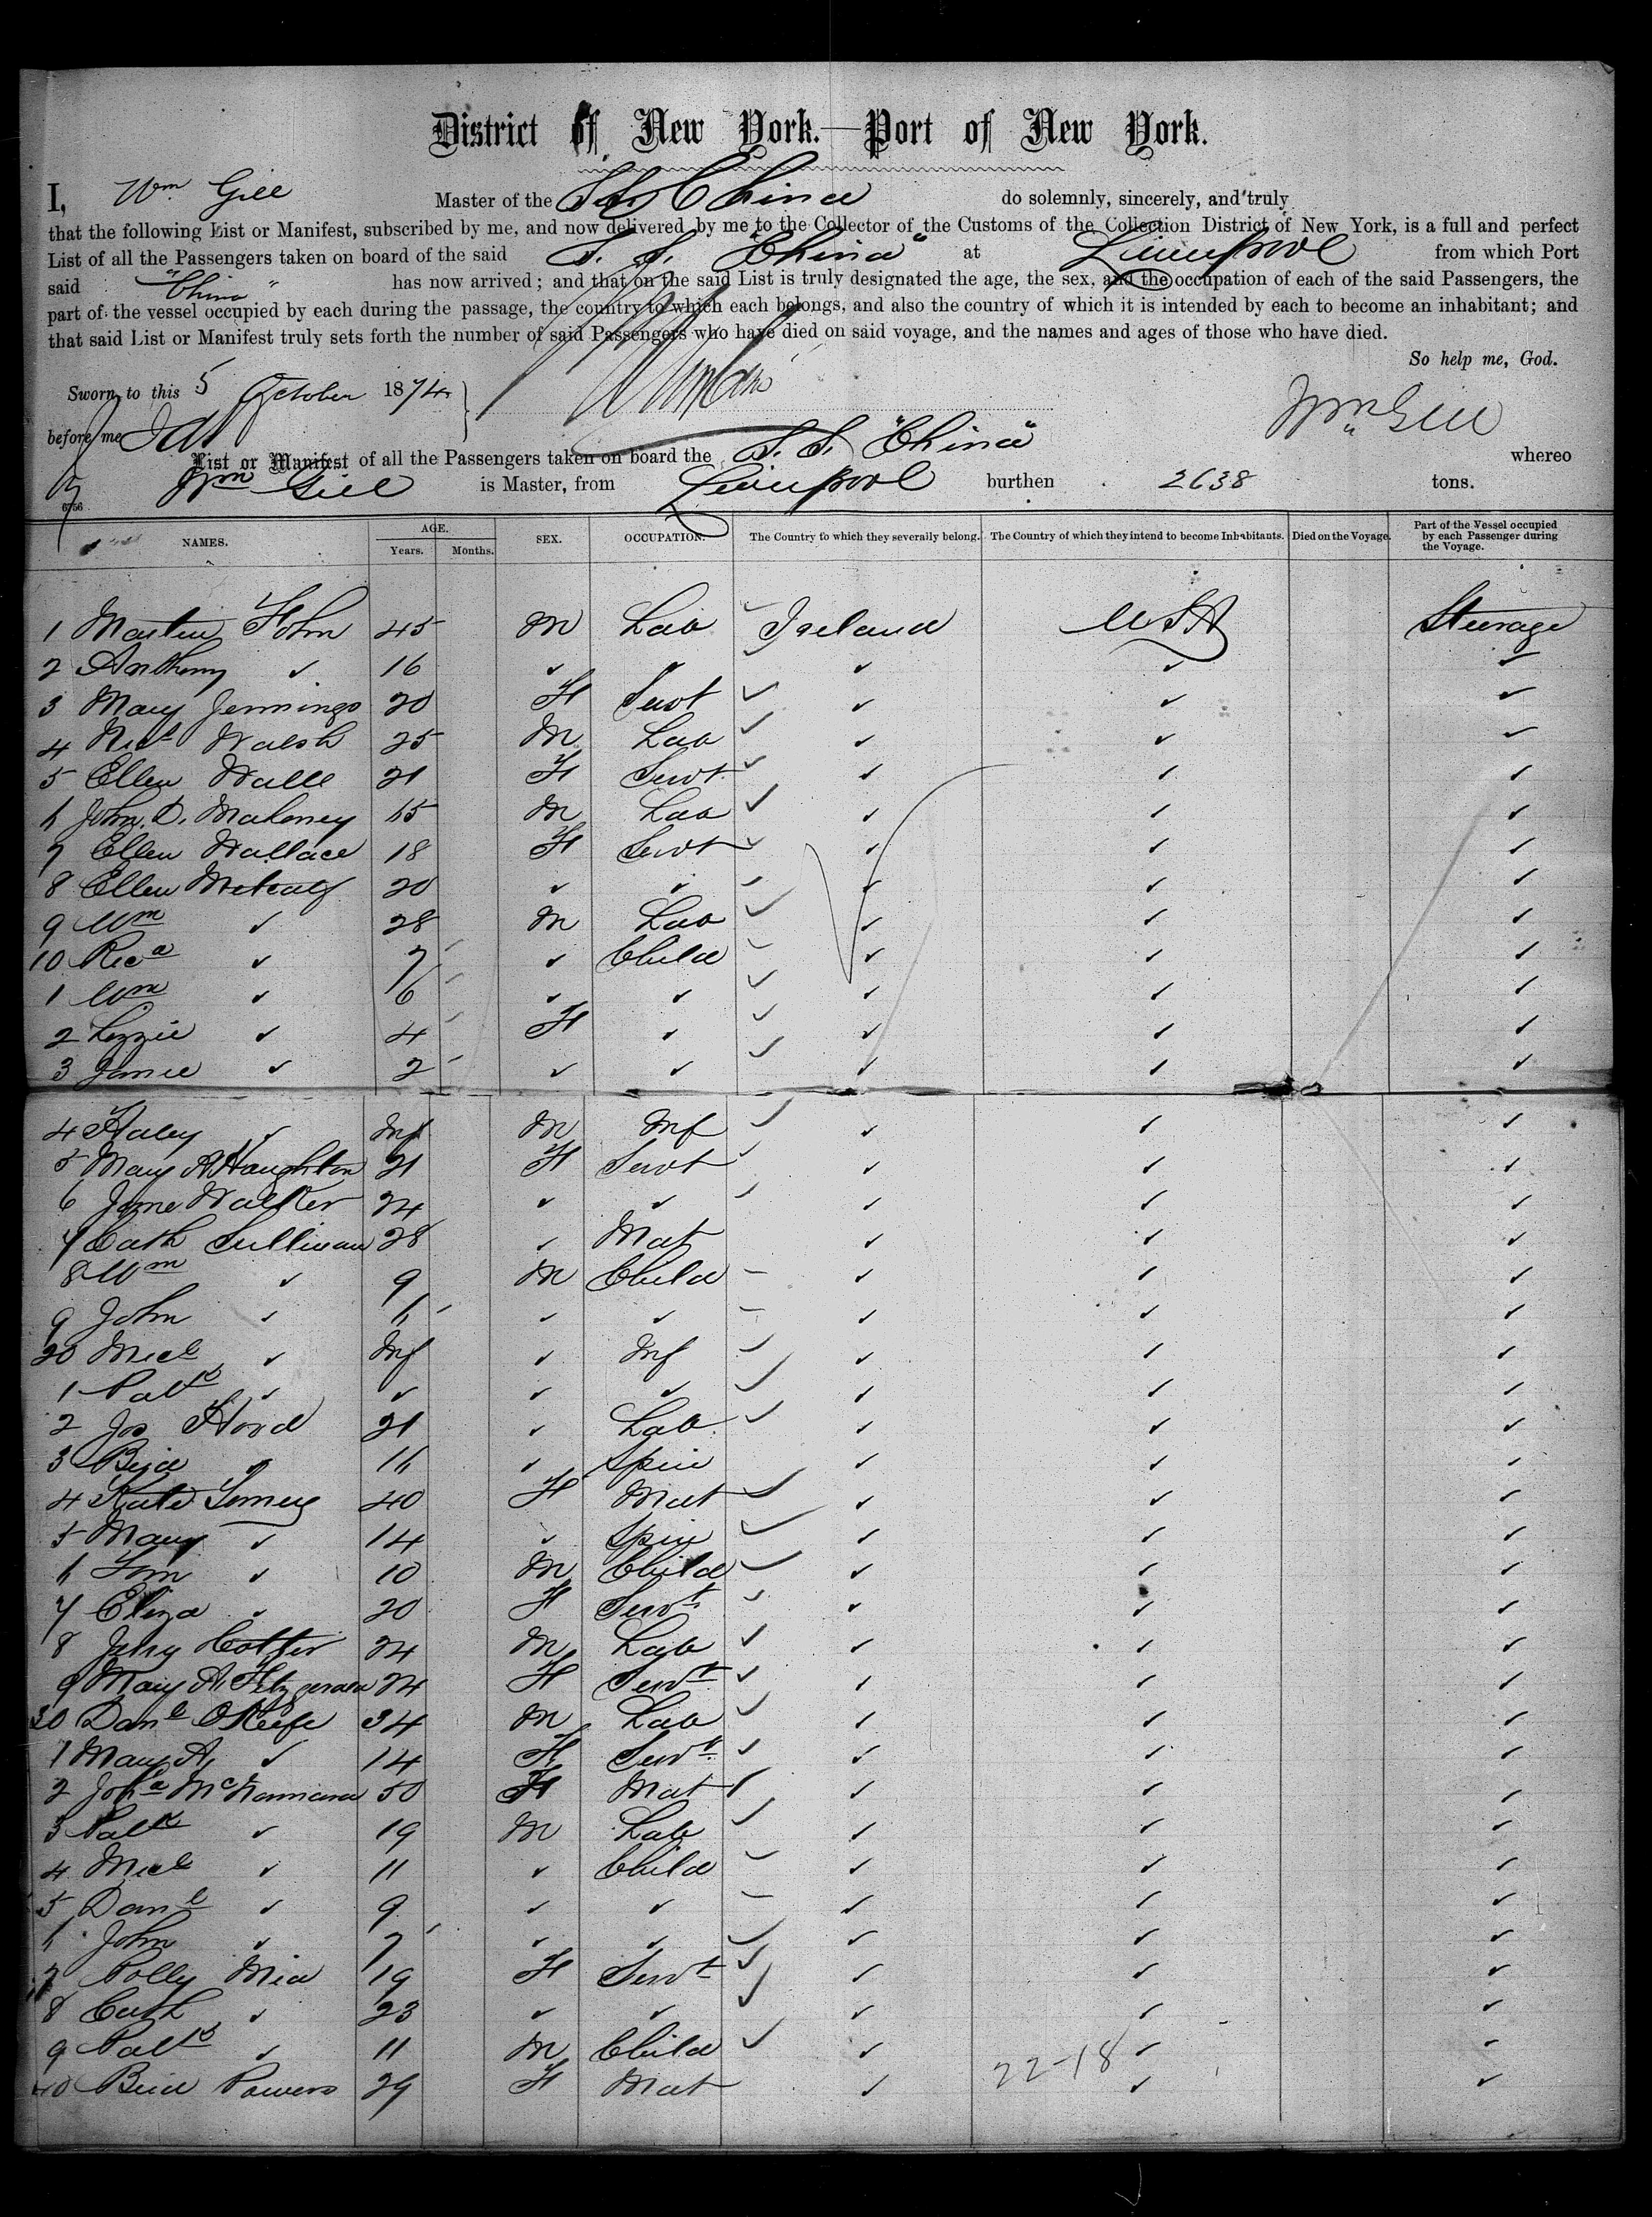 District of New York.—Port of New York.
I, Wm Gill Master of the S.S. China do solemnly, sincerely, and truly
that the following List or Manifest, subscribed by me, and now delivered by me to the Collector of the Customs of the Collection District of New York, is a full and perfect
List of all the Passengers taken on board of the said S. S. "China" at Liverpool from which Port
said "China" has now arrived; and that on the said List is truly designated the age, the sex, and the occupation of each of the said Passengers, the
part of the vessel occupied by each during the passage, the country to which each belongs, and also the country of which it is intended by each to become an inhabitant; and
that said List or Manifest truly sets forth the number of said Passengers who have died on said voyage, and the names and ages of those who have died.
So help me, God.
Sworn to this 5 October 1874
Wm Gill
before me
List or Manifest of all the Passengers taken on board the S. S. "China" whereo
Wm Gill is Master, from Liverpool burthen 2638 tons.
6756
NAMES. AGE. Years. Months. SEX. OCCUPATION. The Country to which they severally belong. The Country of which they intend to become Inhabitants. Died on the Voyage. Part of the Vessel occupied by each Passenger during the Voyage.
1 Martin John 45 M Lab Ireland USA Steerage
2 Anthony " 16 " " " " "
3 Mary Jennings 20 F Servt " " "
4 Walsh 25 M Lab " " "
5 Ellen Walle 21 F Servt " " "
6 John D. Mahoney 15 M Lab " " "
7 Ellen Wallace 18 F Servt " " "
8 Ellen Metcalf 20 " " " " "
9 Wm " 28 M Lab " " "
10 " 7 " Child " " "
1 Wm " 6 " " " " "
2 Lizzie " 4 F " " " "
3 Janie " 2 " " " " "
4 " Inf M Inf " " "
5 Mary A Haughton 21 F Servt " " "
6 Jane Walker 24 " " " " "
7 Cath Sullivan 28 " Mat " " "
8 Wm " 9 M Child " " "
9 John " 6 " " " " "
20 Micl " Inf " Inf " " "
1 Patk " " " " " " "
2 Jos Hood 21 " Lab " " "
3 " 16 " Spin " " "
4 Kate 40 F Mat " " "
5 Mary " 14 " Spin " " "
6 Tom " 10 M Child " " "
7 Eliza " 20 F Servt " " "
8 Jerry Cotter 24 M Lab " " "
9 Mary A Fitzgerald 24 F Servt " " "
30 Danl O'Keefe 34 M Lab " " "
1 Mary A, " 14 F Servt " " "
2 Joha McNamara 50 F Mat " " "
3 Patk " 19 M Lab " " "
4 Micl " 11 " Child " " "
5 Danl " 9 " " " " "
6 John " 7 " " " " "
7 Polly 19 F Servt " " "
8 Cath " 23 " " " " "
9 Patk " 11 M Child " " "
40 Powers 29 F Mat " " "
22-18